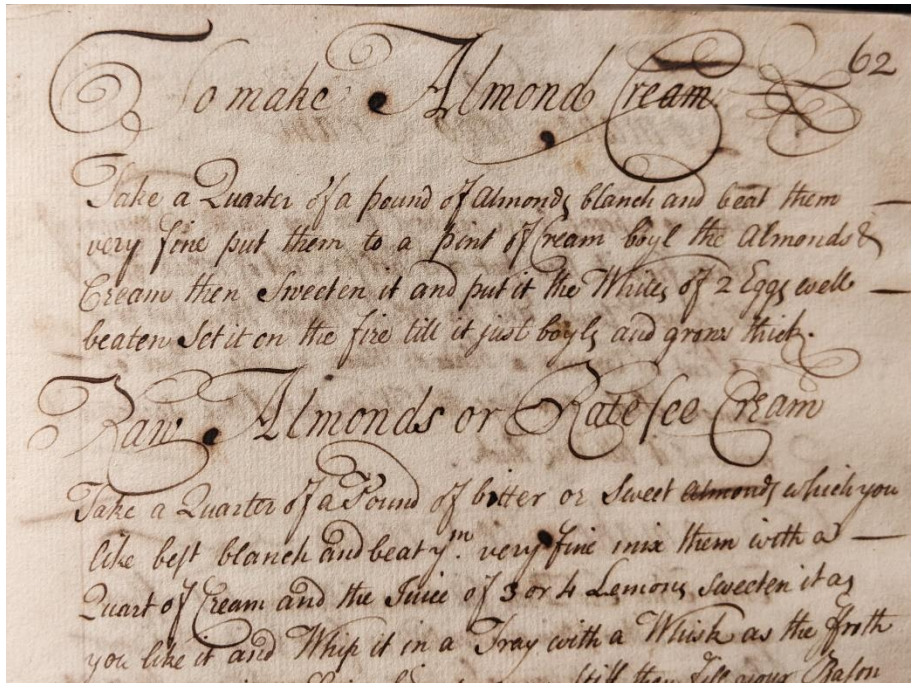 62
To make Almond Cream
Take a Quarter of a pound of Almonds blanch and beat them
very fine put them to a pint of Cream boyl the Almonds &
Cream then Sweeten it and put it the Whites of 2 Eggs well
beaten Set it on the fire till it just boyls and grows thick.
Raw Almonds or Ratefee Cream
Take a Quarter of a Pound of bitter or Sweet Almonds which you
like best blanch and beat ym. very fine mix them with a
Quart of Cream and the Juice of 3 or 4 Lemons sweeten it as
you like it and Whip it in a Tray with a Whisk as the ffroth
still then fill your Bason